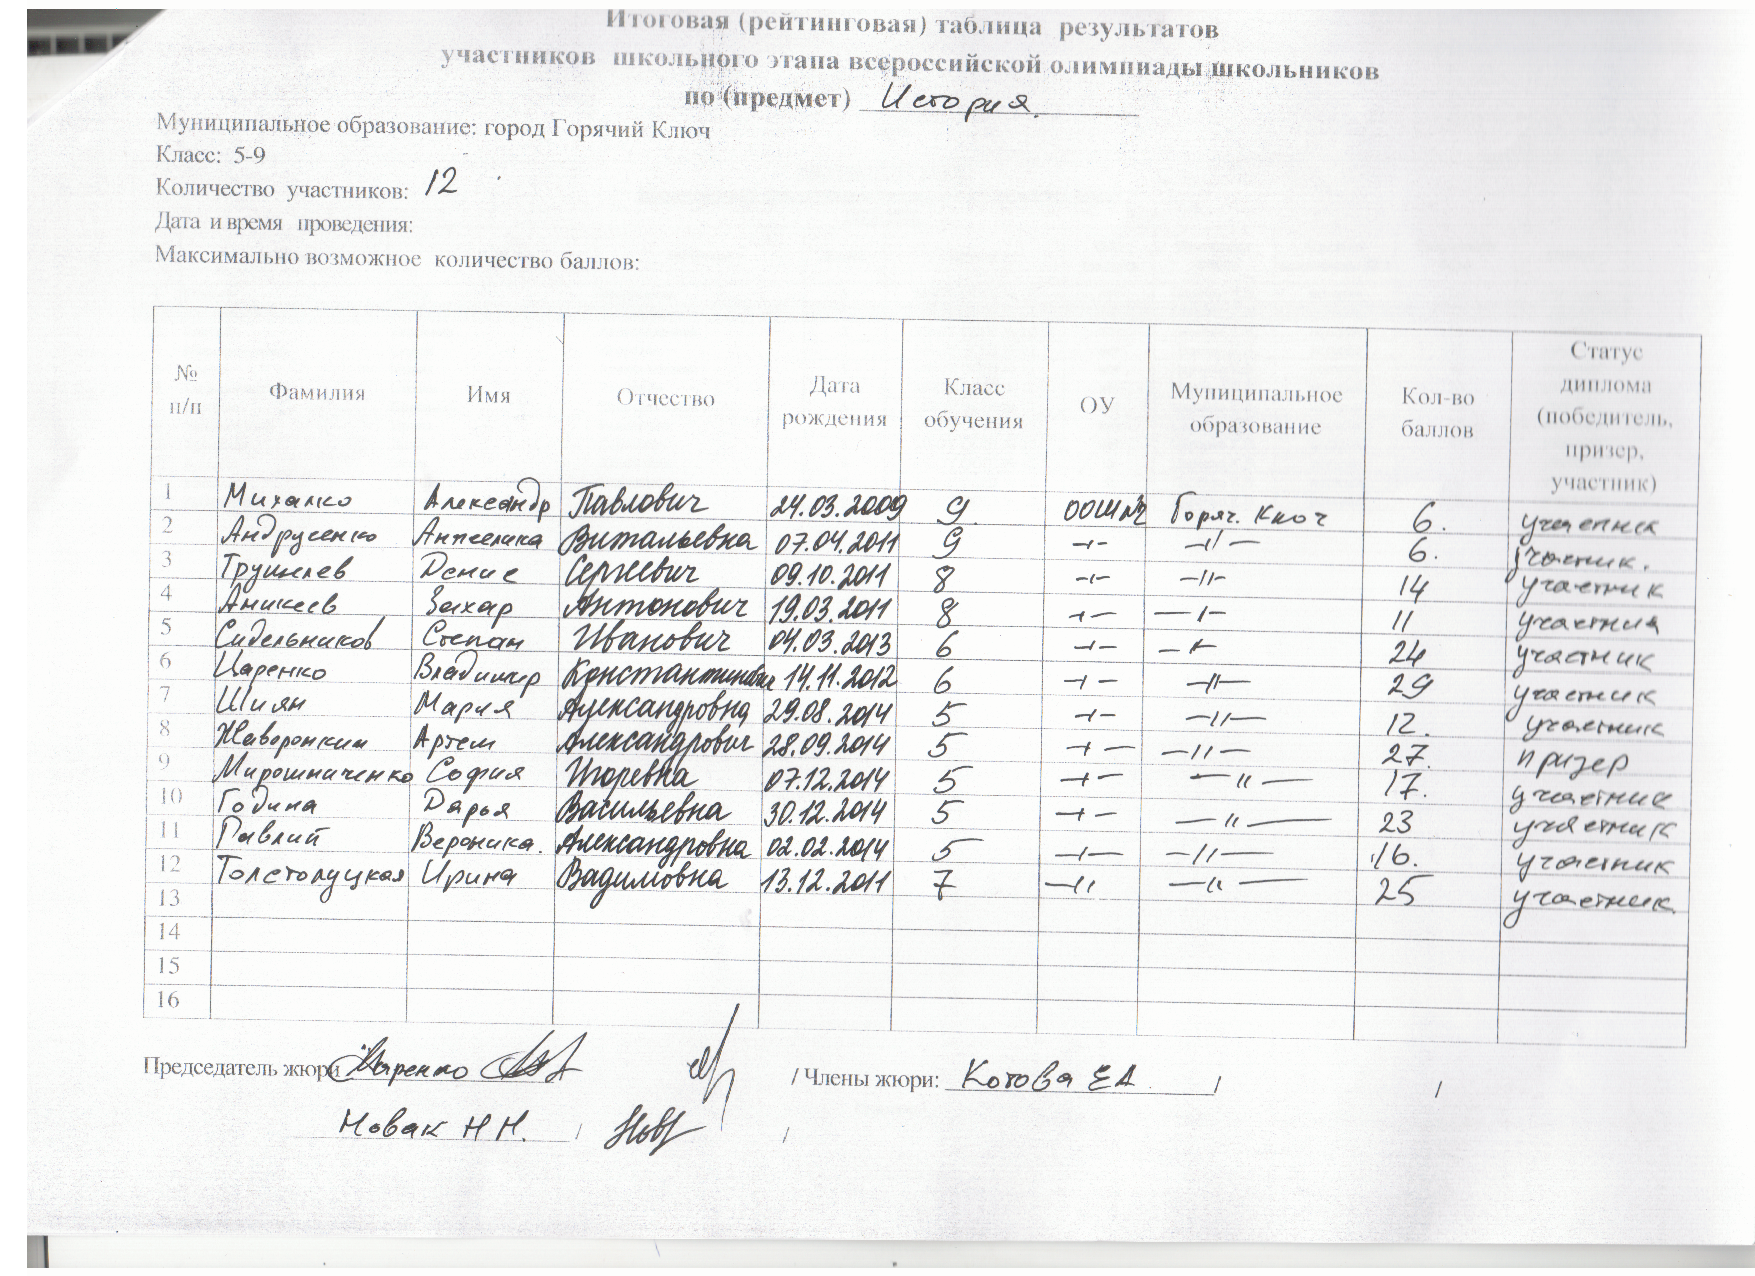 Итоговая (рейтинговая) таблица результатов
участников школьного этапа всероссийской олимпиады школьников
по (предмет) История.
Муниципальное образование: город Горячий Ключ
Класс: 5-9
Количество участников: 12
Дата и время проведения:
Максимально возможное количество баллов:
№ п/п Фамилия Имя Отчество Дата рождения Класс обучения ОУ Муниципальное образование Кол-во баллов Статус диплома (победитель, призер, участник)
1 Михалко Александр Павлович 24.03.2009 9 ООШ Горяч. Ключ 6. участник
2 Андрусенко Анжелика Витальевна 07.04.2011 9 -//- -//- 6. участник.
3 Денис Сергеевич 09.10.2011 8 -//- -//- 14 участник
4 Аникеев Захар Антонович 19.03.2011 8 -//- -//- 11 участник
5 Сидельников Степан Иванович 04.03.2013 6 -//- -//- 24 участник
6 Царенко Владимир Константинович 14.11.2012 6 -//- -//- 29 участник
7 Шиян Мария Александровна 29.08.2014 5 -//- -//- 12. участник
8 Жаворонкин Артем Александрович 28.09.2014 5 -//- -//- 27. призер
9 Мирошниченко София Игоревна 07.12.2014 5 -//- -//- 17. участник
10 Година Дарья Васильевна 30.12.2014 5 -//- -//- 23 участник
11 Павлий Вероника. Александровна 02.02.2014 5 -//- -//- 16. участник
12 Толстолуцкая Ирина Вадимовна 13.12.2011 7 -//- -//- 25 участник.
13
14
15
16
Председатель жюри Царенко / Члены жюри: Котова ЕА. / /
Новак Н Н. / /